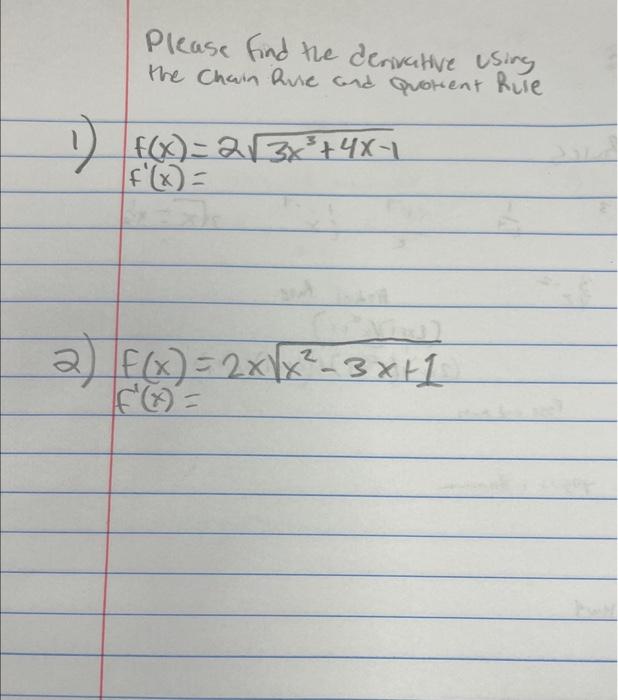 Please find the derivative using
the Chain Rule and Quotient Rule
1) f(x) = 2√(3x³+4x-1)
f'(x) =
2) f(x) = 2x√(x²-3x+1)
f'(x) =